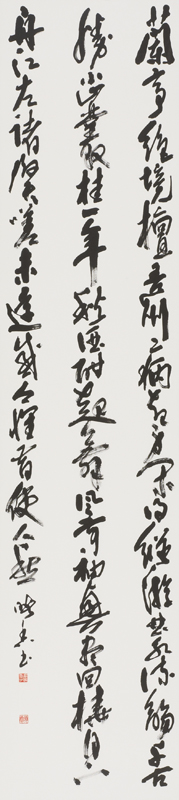 蘭亭絕境擅吾州病起身閑得縱遊曲水流觴千古
勝小山叢桂一年秋酒酣起舞風前袖興盡回橈月下
舟江左諸賢嗟未遠感今懷昔使人愁 書